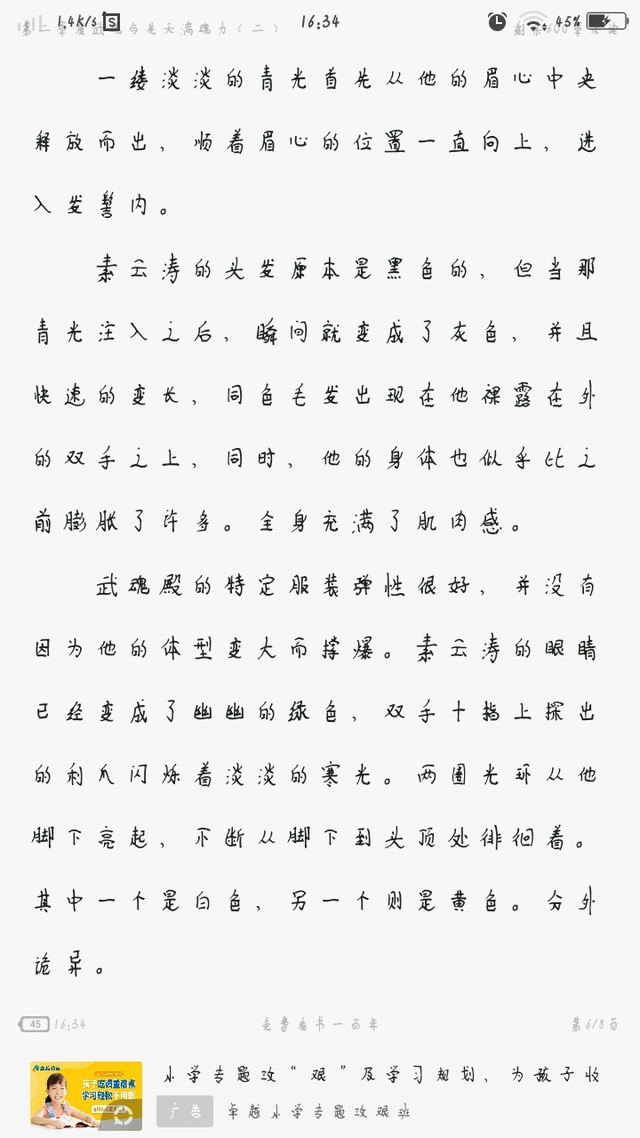 1.4K/s
16:34
45%
一缕淡淡的青光首先从他的眉心中央
释放而出，顺着眉心的位置一直向上，进
入发髻内。
素云涛的头发原本是黑色的，但当那
青光注入之后，瞬间就变成了灰色，并且
快速的变长，同色毛发出现在他裸露在外
的双手之上，同时，他的身体也似乎比之
前膨胀了许多。全身充满了肌肉感。
武魂殿的特定服装弹性很好，并没有
因为他的体型变大而撑爆。素云涛的眼睛
已经变成了幽幽的绿色，双手十指上探出
的利爪闪烁着淡淡的寒光。两圈光环从他
脚下亮起，不断从脚下到头顶处徘徊着。
其中一个是白色，另一个则是黄色。分外
诡异。
45 16:34
免费看书一百年
第6/8页
小学专题攻“艰”及学习规划，为孩子收
广告
卓越小学专题攻艰班